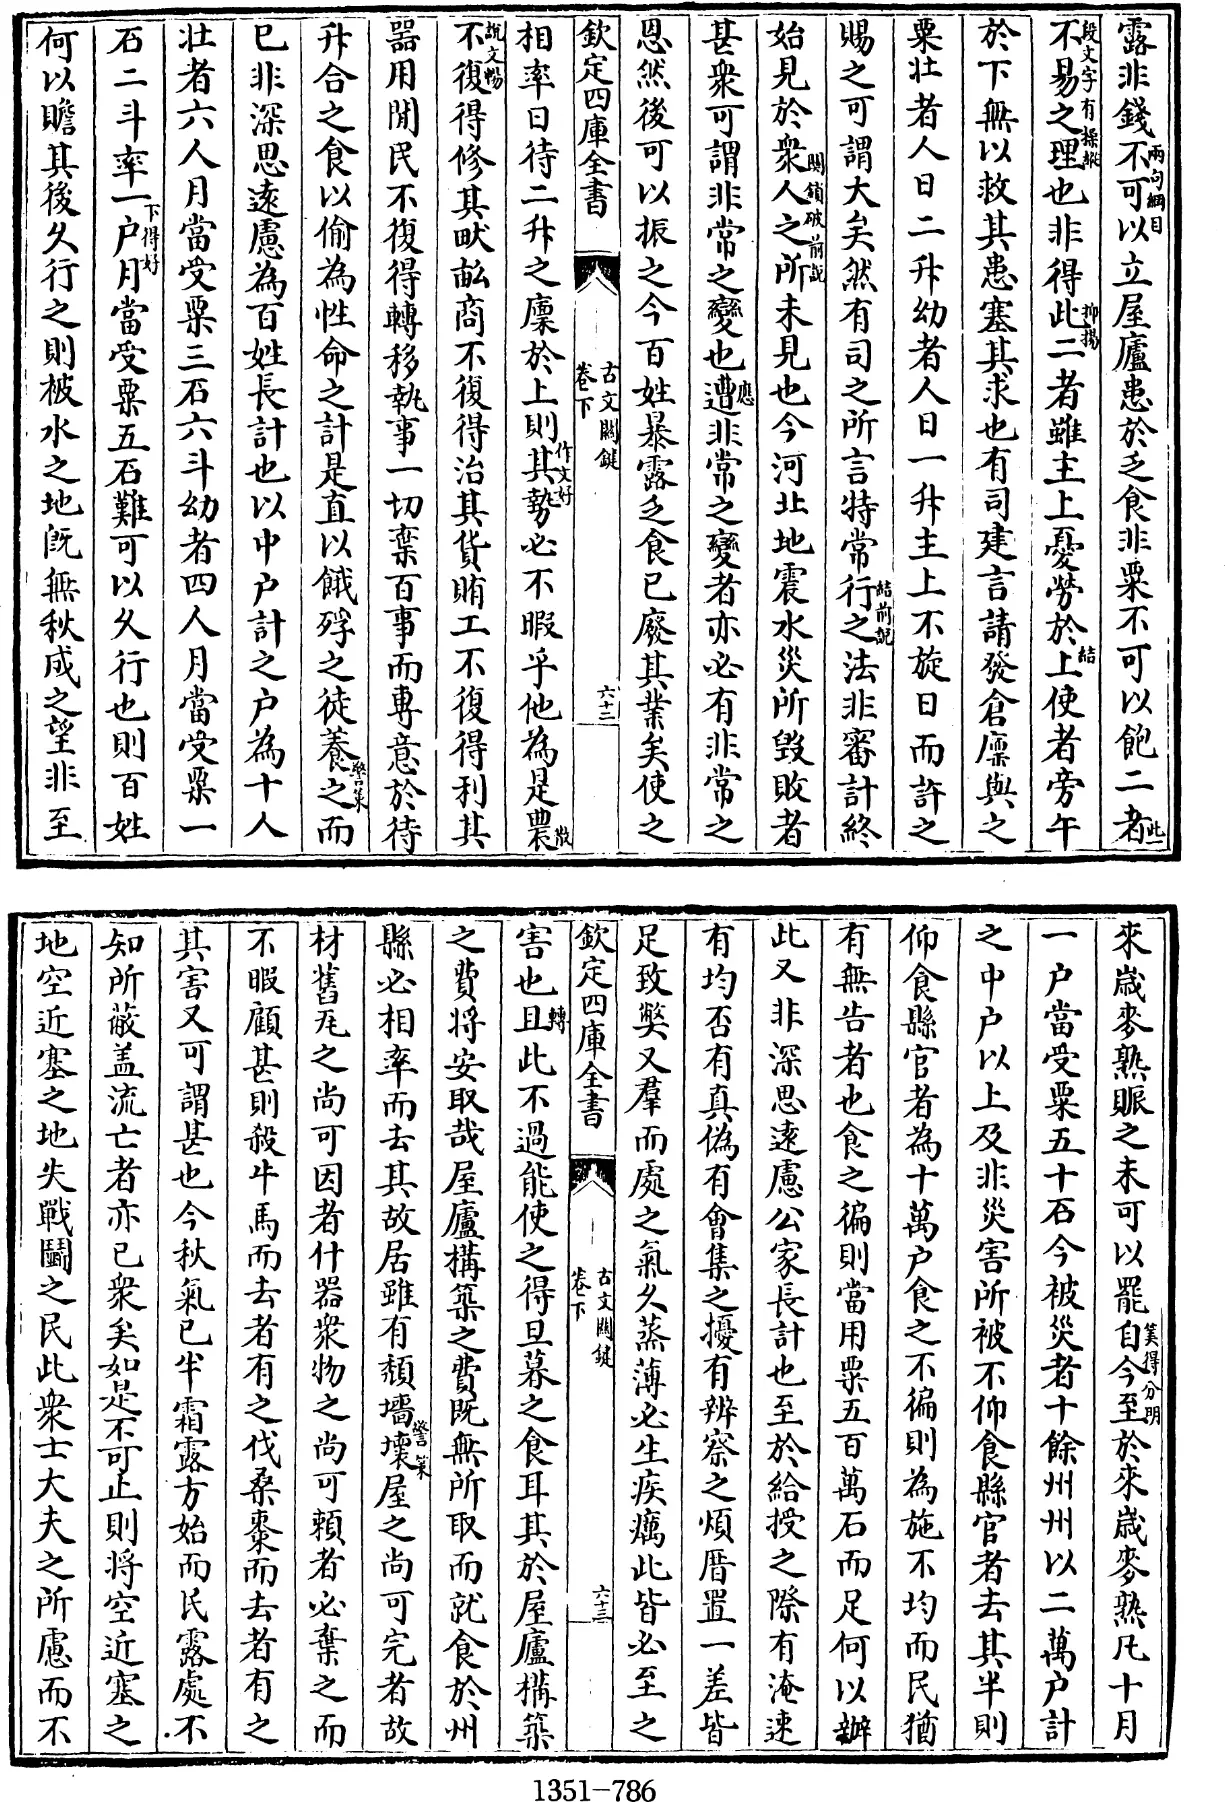 露非錢不可以立屋廬患於乏食非粟不可以飽二者此
兩句綱目
不易之理也非得此二者雖主上憂勞於上使者旁午
段文字有操縱
抑揚
結
於下無以救其患塞其求也有司建言請發倉廩與之
粟壯者人日二升幼者人日一升主上不旋日而許之
賜之可謂大矣然有司之所言特常行之法非審計終
結前說
始見於衆人之所未見也今河北地震水災所毀敗者
關鎖破前說
甚衆可謂非常之變也遭非常之變者亦必有非常之
應
恩然後可以振之今百姓暴露乏食已廢其業矣使之
欽定四庫全書
古文關鍵
卷下
六十二
相率日待二升之廩於上則其勢必不暇乎他為是農
作文好
散
不復得修其畎畝商不復得治其貨賄工不復得利其
說文暢
器用閒民不復得轉移執事一切棄百事而專意於待
升合之食以偷為性命之計是直以餓殍之徒養之而
警策
已非深思遠慮為百姓長計也以中户計之户為十人
壯者六人月當受粟三石六斗幼者四人月當受粟一
石二斗率一户月當受粟五石難可以久行也則百姓
下得好
何以贍其後久行之則被水之地既無秋成之望非至
來歲麥熟賑之未可以罷自今至於來歲麥熟凡十月
筭得分明
一户當受粟五十石今被災者十餘州州以二萬户計
之中户以上及非災害所被不仰食縣官者去其半則
仰食縣官者為十萬户食之不徧則為施不均而民猶
有無告者也食之徧則當用粟五百萬石而足何以辦
此又非深思遠慮公家長計也至於給授之際有淹速
有均否有真偽有會集之擾有辨察之煩厝置一差皆
足致弊又羣而處之氣久蒸薄必生疾癘此皆必至之
欽定四庫全書
古文關鍵
卷下
六十三
害也且此不過能使之得旦暮之食耳其於屋廬構築
轉
之費將安取哉屋廬構築之費既無所取而就食於州
縣必相率而去其故居雖有頹墻壞屋之尚可完者故
警策
材舊瓦之尚可因者什器衆物之尚可賴者必棄之而
不暇顧甚則殺牛馬而去者有之伐桑棗而去者有之
其害又可謂甚也今秋氣已半霜露方始而民露處不
知所蔽盖流亡者亦已衆矣如是不可止則將空近塞之
地空近塞之地失戰鬭之民此衆士大夫之所慮而不
1351-786